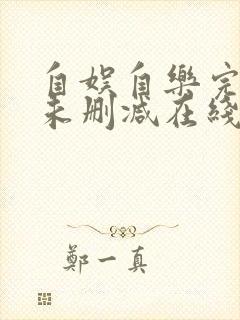 自娱自樂完
未删减在綫
鄭一真